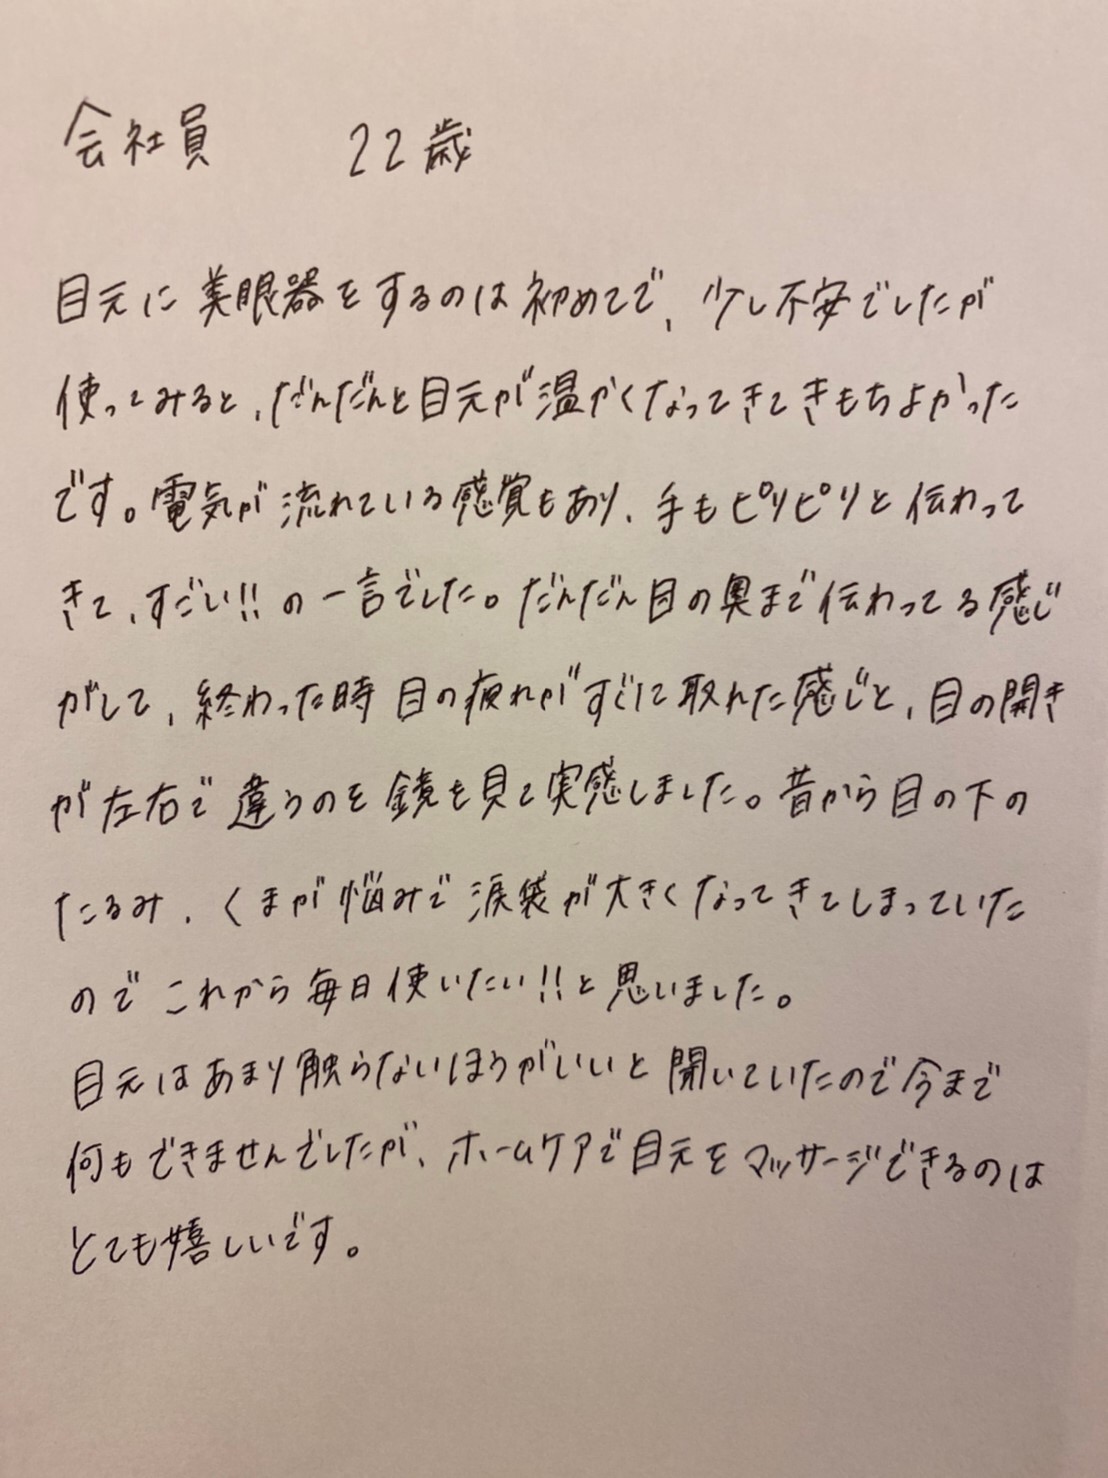 会社員　22歳
目元に美眼器をするのは初めてで、少し不安でしたが
使ってみると、だんだんと目元が温かくなってきてきもちよかった
です。電気が流れている感覚もあり、手もピリピリと伝わって
きて、すごい!!の一言でした。だんだん目の奥まで伝わってる感じ
がして、終わった時目の疲れがすぐに取れた感じと、目の開き
が左右で違うのを鏡を見て実感しました。昔から目の下の
たるみ、くまが悩みで涙袋が大きくなってきてしまっていた
のでこれから毎日使いたい!!と思いました。
目元はあまり触らないほうがいいと聞いていたので今まで
何もできませんでしたが、ホームケアで目元をマッサージできるのは
とても嬉しいです。